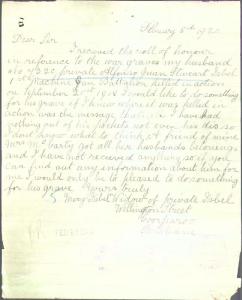 February 5th 1920
Dear Sir
I received the roll of honour
in reference to the war graves my husband
No 4320 private Alfonso Juan Stewart Isbel
Machine Gun Battalion killed in action
on September 21st 1918 I would like to do something
for his grave if I knew where it was killed in
action was the message I have had
nothing out of his pockets not even his disc so
I don't know what to think, a friend of mine
Mrs McCarty got all her husbands belongings
and I have not received anything so if you
can find out any information about him for
me I would only be to pleased to do something
for his grave Yours truly
Isbel Widow of private Isbel
Wellington Street
Coorparoo
Brisbane